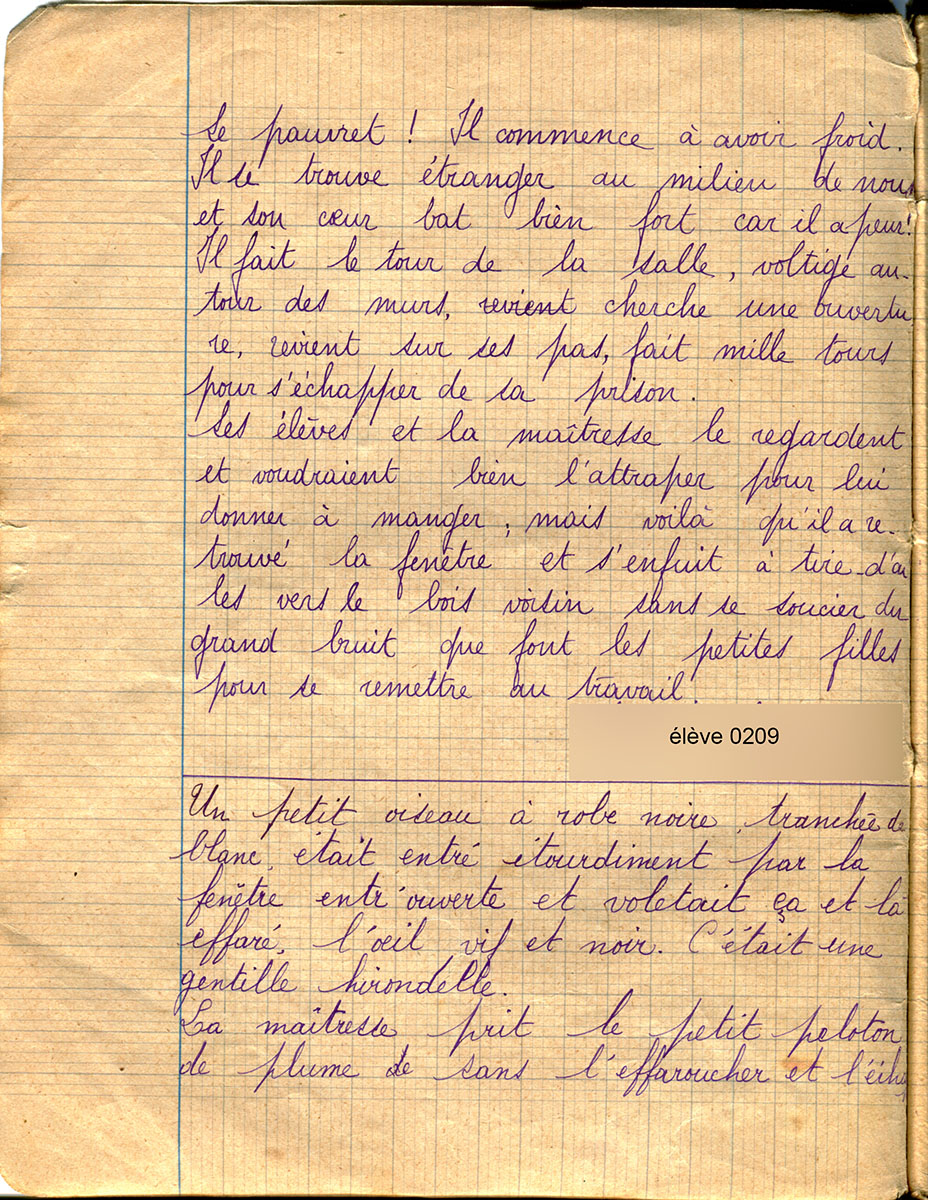 Le pauvret ! Il commence à avoir froid.
Il se trouve étranger au milieu de nous
et son cœur bat bien fort car il a peur!
Il fait le tour de la salle, voltige au-
tour des murs, revient cherche une ouvertu
re, revient sur ses pas, fait mille tours
pour s'échapper de sa prison.
Les élèves et la maîtresse le regardent
et voudraient bien l'attraper pour lui
donner à manger, mais voilà qu'il a re-
trouvé la fenêtre et s'enfuit à tire-d'ai
les vers le bois voisin sans se soucier du
grand bruit que font les petites filles
pour se remettre au travail
élève 0209
Un petit oiseau à robe noire, tranchée de
blanc, était entré étourdiment par la
fenêtre entr'ouverte et voletait ça et la
effaré, l'œil vif et noir. C'était une
gentille hirondelle.
La maîtresse prit le petit peloton
de plume de sans l'effaroucher et